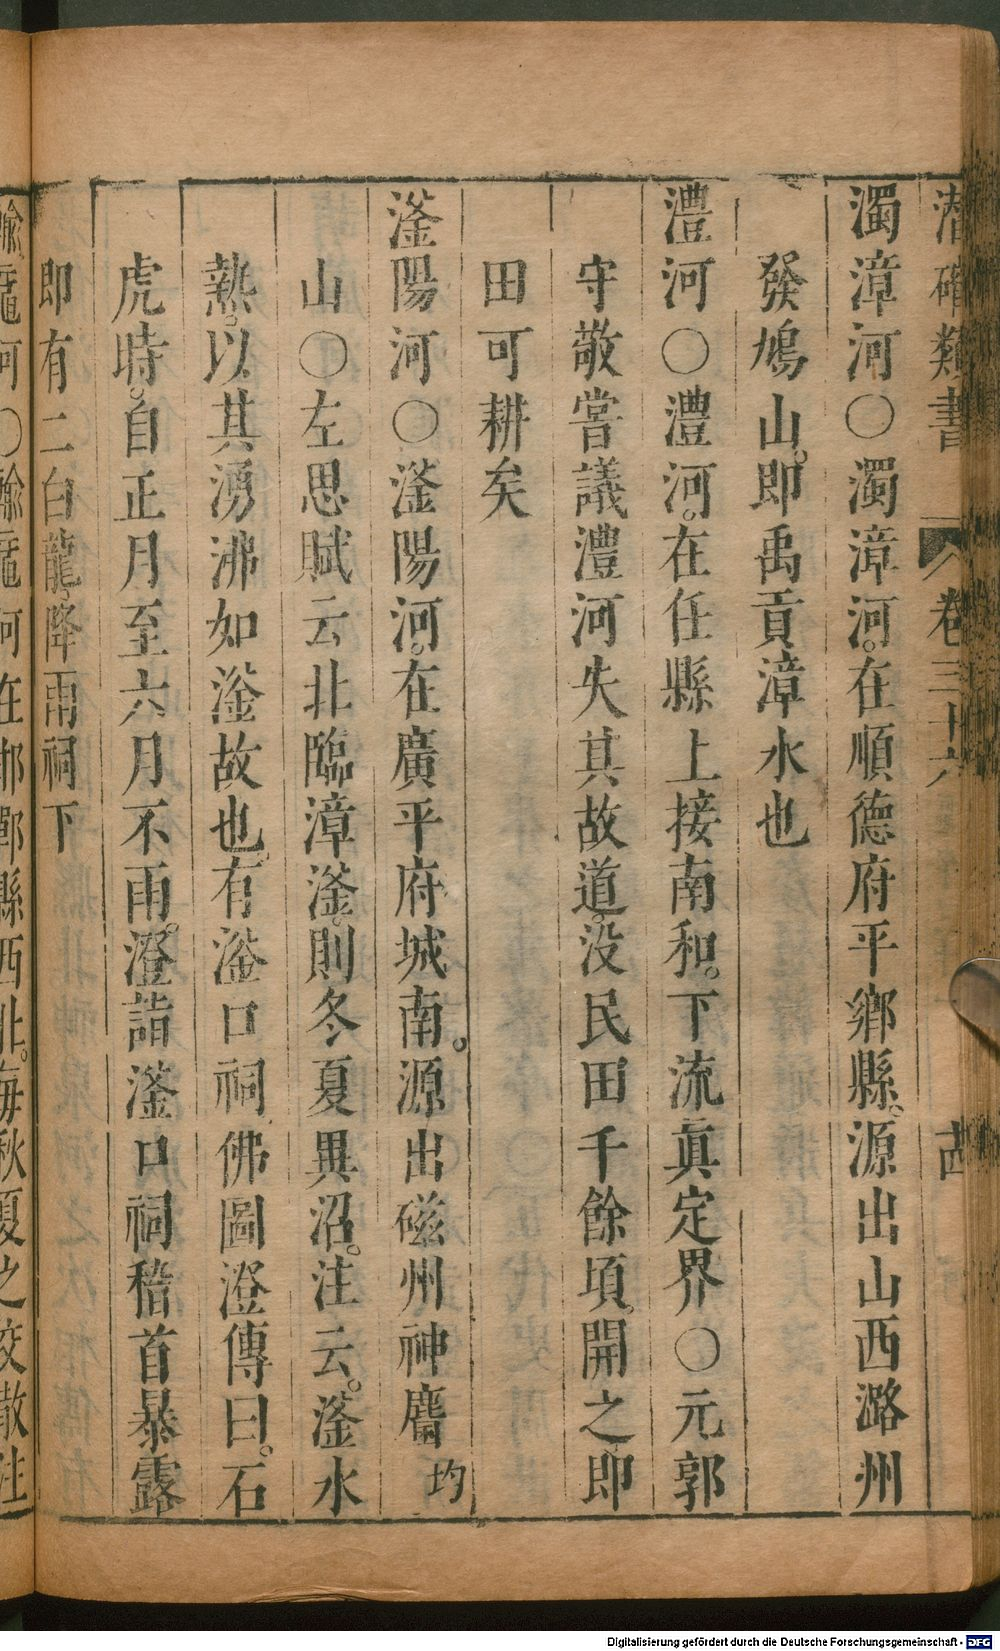 潛確類書 卷三十六
濁漳河○濁漳河。在順德府平鄉縣。源出山西潞州
發鳩山。即禹貢漳水也
澧河○澧河。在任縣上接南和。下流眞定界○元郭
守敬嘗議澧河失其故道。没民田千餘頃。開之即
田可耕矣
滏陽河○滏陽河。在廣平府城南。源出磁州神麕均
山○左思賦云北臨漳滏。則冬夏異沼。注云。滏水
熱。以其湧沸如滏故也。有滏口祠佛圖澄傳曰。石
虎時。自正月至六月不雨。澄詣滏口祠稽首暴露
即有二白龍降雨祠下
河○ 河在邯鄲縣西北。每秋夏之交散注
Digitalisierung gefördert durch die Deutsche Forschungsgemeinschaft - DFG